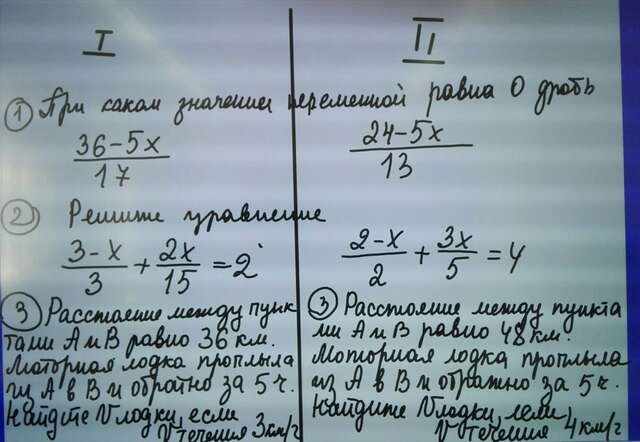 I
II
① При каком значении переменной равна 0 дробь
36-5x
17
24-5x
13
② Решите уравнение
3-x
3
+
2x
15
=2
2-x
2
+
3x
5
=4
③ Расстояние между пунк
тами А и В равно 36 км.
Моторная лодка проплыла
из А в В и обратно за 5 ч.
Найдите V лодки, если
V течения 3 км/ч
③ Расстояние между пункта
ми А и В равно 48 км.
Моторная лодка проплыла
из А в В и обратно за 5 ч.
Найдите V лодки, если
V течения 4 км/ч